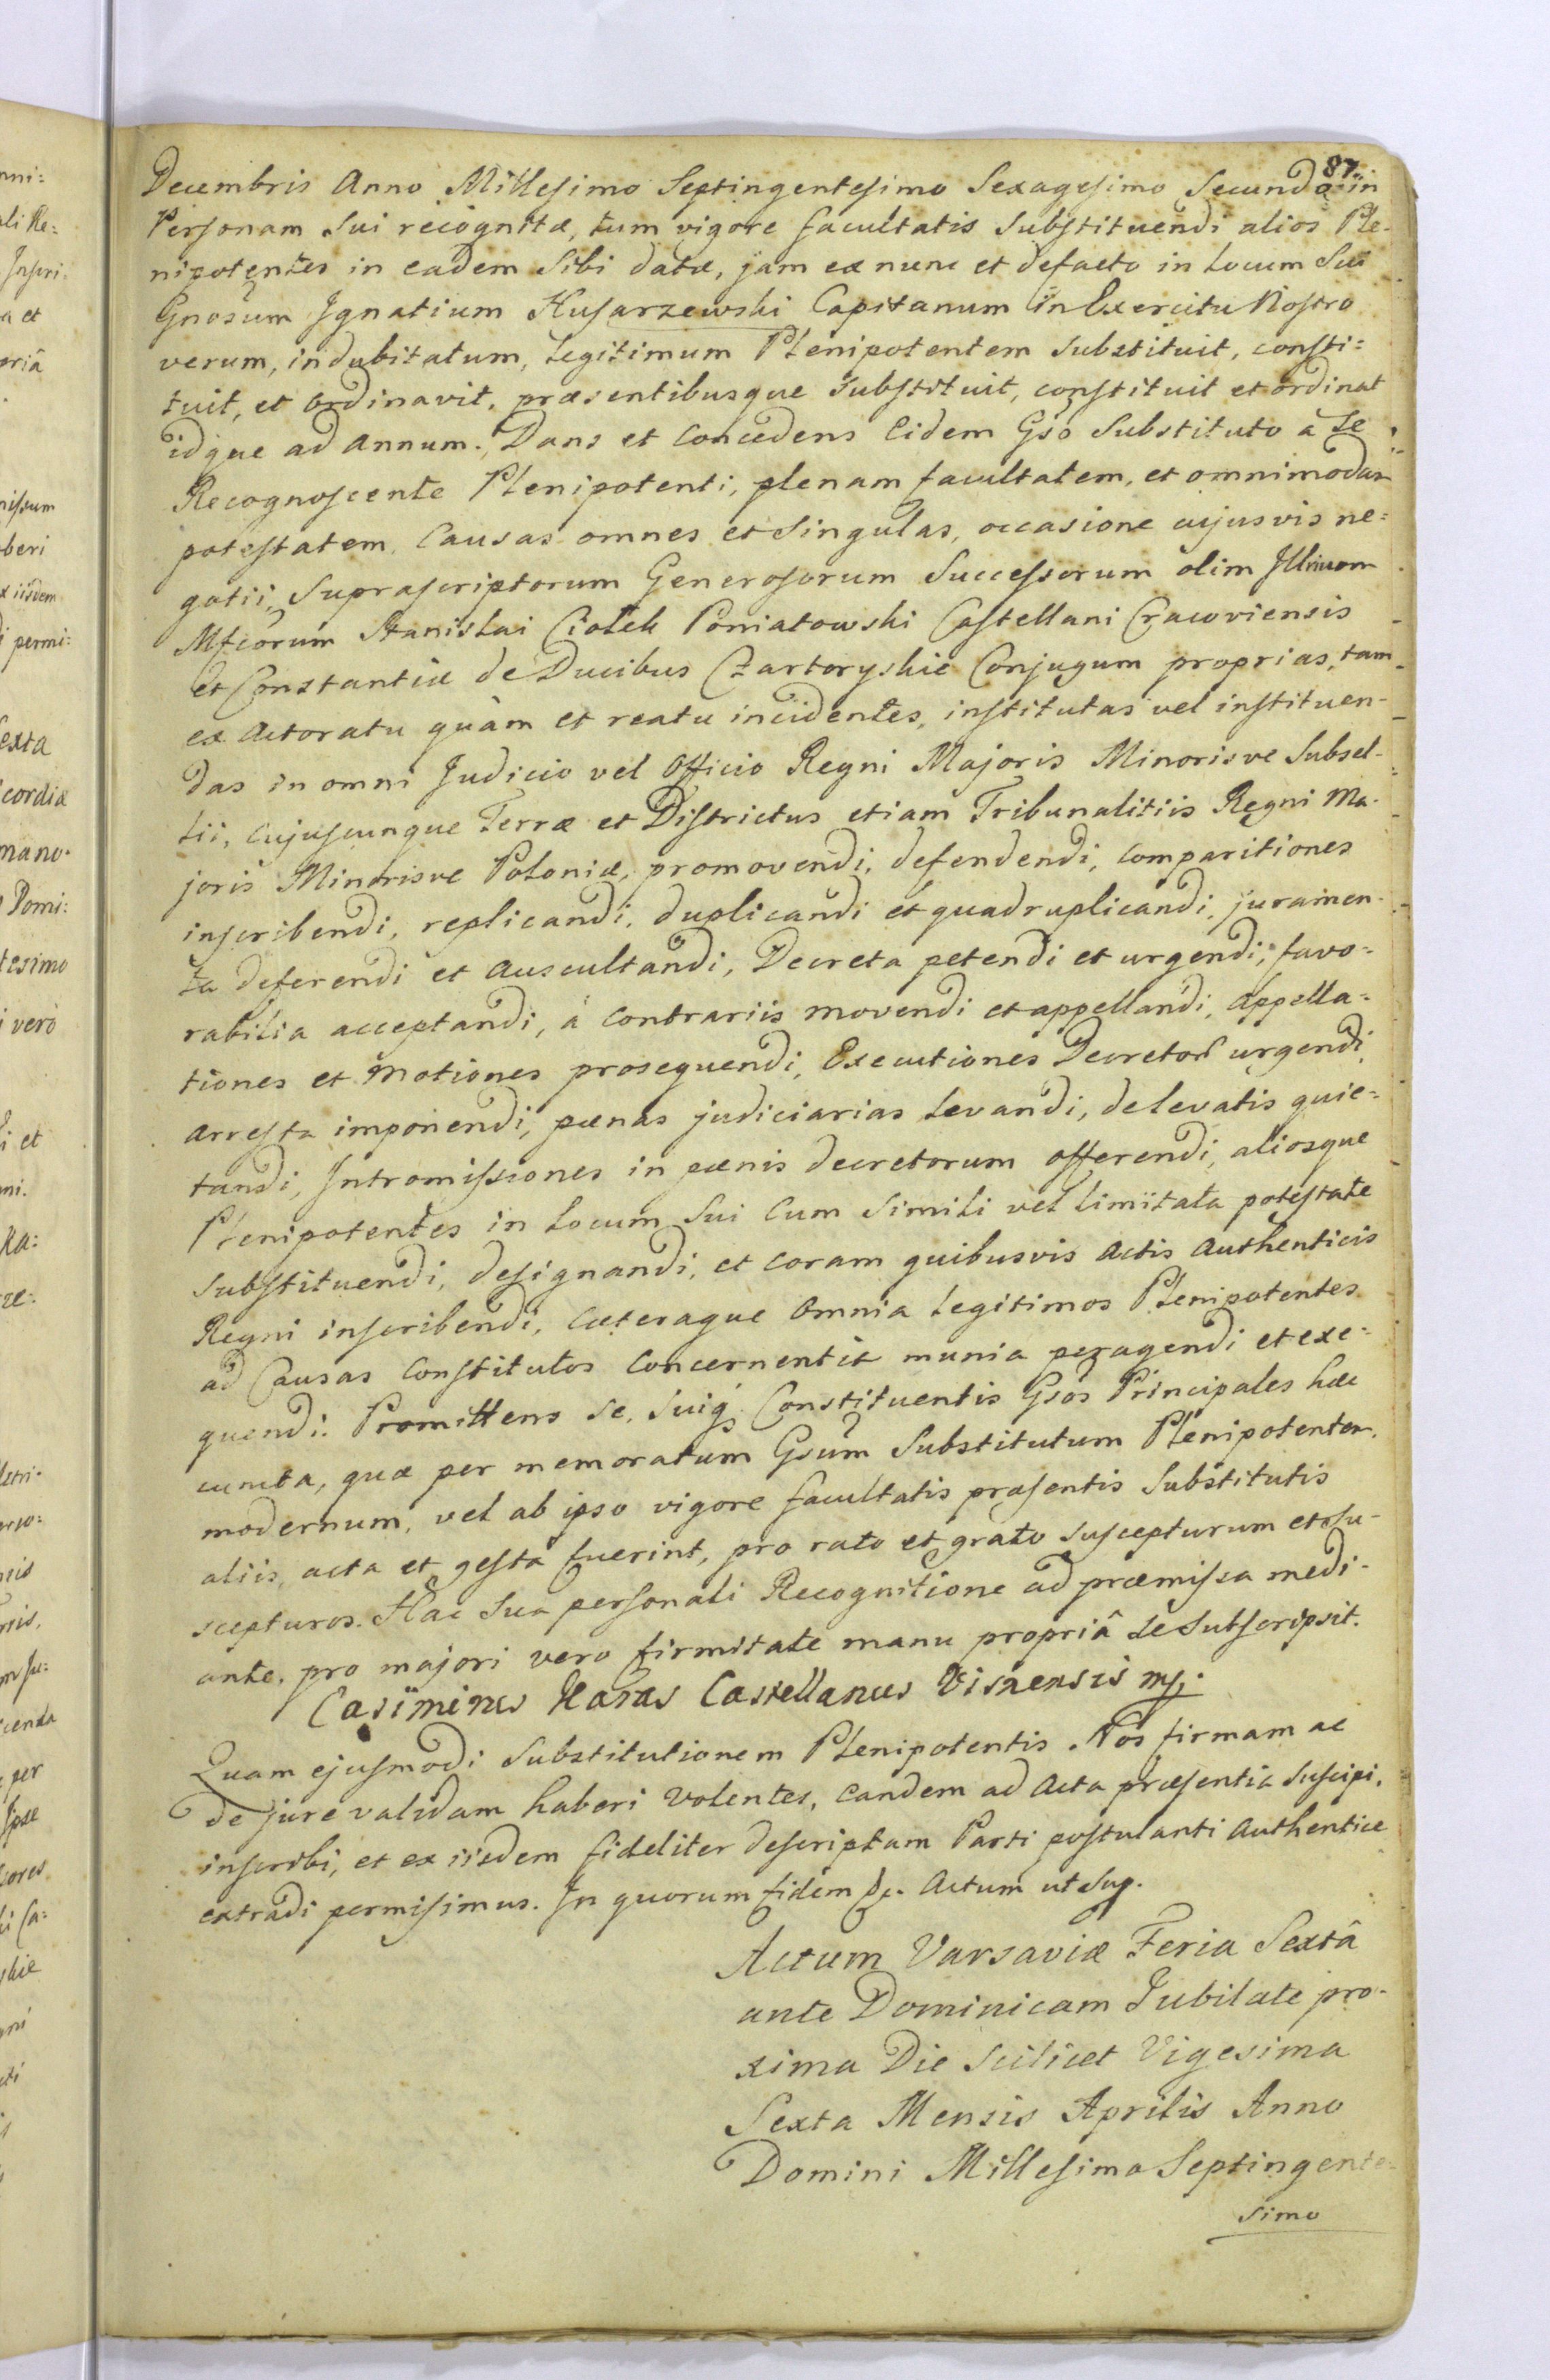 87
Decembris Anno Millesimo Septingentesimo Sexagesimo Secundo in
Personam Sui recognitæ, tum vigore facultatis Substituendi alios Ple-
nipotentes in eadem Sibi datæ, jam ex nunc et defacto in Locum Sui
Gnosum Ignatium Husarzewski Capitanum in Exercitu Nostro
verum, indubitatum, Legitimum Plenipotentem substituit, consti=
tuit, et ordinavit, præsentibusque substituit, constituit et ordinat
idque ad Annum. Dans et Concedens Eidem Gso Substituto a Se
Recognoscente Plenipotenti, plenam facultatem, et omnimodam
potestatem Causas omnes et Singulas, occasione cujusvis ne=
gotii, Suprascriptorum Generosorum Successorum olim Illrium
Mfcorum Stanislai Ciołek Poniatowski Castellani Cracoviensis
et Constantiæ de Ducibus Czartoryskie Conjugum proprias, tam
ex Actoratu quàm et reatu incidentes, institutas vel instituen-
das in omni Judicio vel Officio Regni Majoris Minorisve Subsel-
lii, Cujuscunque Terræ et Districtus etiam Tribunalitiis Regni Ma-
joris Minorisve Poloniæ, promovendi, defendendi, Comparitiones
inscribendi, replicandi, duplicandi et quadruplicandi, juramen-
ta deferendi et Auscultandi, Decreta petendi et urgendi, favo=
rabilia acceptandi, à Contrariis movendi et appellandi, Appella=
tiones et Motiones prosequendi, Executiones Decretor urgendi,
Arresta imponendi, pænas judiciarias Levandi, de levatis quie=
tandi, Intromissiones in pænis decretorum offerendi, aliosque
Plenipotentes in Locum Sui Cum Simili vel limitata potestate
substituendi, designandi, et Coram quibusvis Actis Authenticis
Regni inscribendi, Cæteraque Omnia Legitimos Plenipotentes
ad Causas Constitutos Concernentia munia peragendi et exe=
quendi. Promittens Se, Suiq Constituentis Gsos Principales hæc
cuncta, quæ per memoratum Gsum Substitutum Plenipotentem
modernum, vel ab ipso vigore facultatis præsentis Substitutis
aliis, acta et gesta fuerint, pro rato et grato suscepturum et su-
scepturos. Hac Sua personali Recognitione ad præmissa medi-
ante, pro majori vero firmitate manu propriâ Se Subscripsit.
Casimirus Karas Castellanus Visnensis mp.
Quam ejusmodi Substitutionem Plenipotentis Nos firmam ac
de jure validam haberi Volentes, eandem ad Acta præsentia Suscipi,
inscribi, et ex iisdem fideliter descriptam Parti postulanti Authentice
extradi permisimus. In quorum fidem &c. Actum ut Sup.
Actum Varsaviæ Feria Sextâ
ante Dominicam Jubilate pro-
xima Die Scilicet Vigesima
Sexta Mensis Aprilis Anno
Domini Millesimo Septingente-
simo